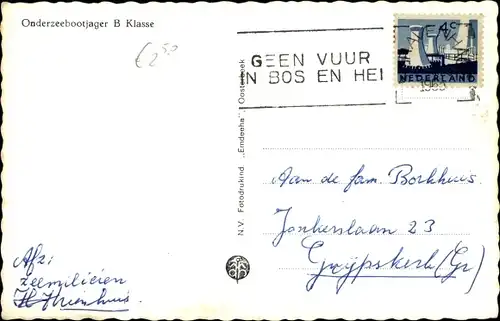 Onderzeebootjager B Klasse
€2,50
GEEN VUUR
IN BOS EN HEI
NEDERLAND
N.V. Fotodrukind „Emdeeha”, Oosterbeek
Aan de fam. Borkhuis.
Jonkerslaan 23
Grijpskerk (Gr)
Afz:
zeemilicien